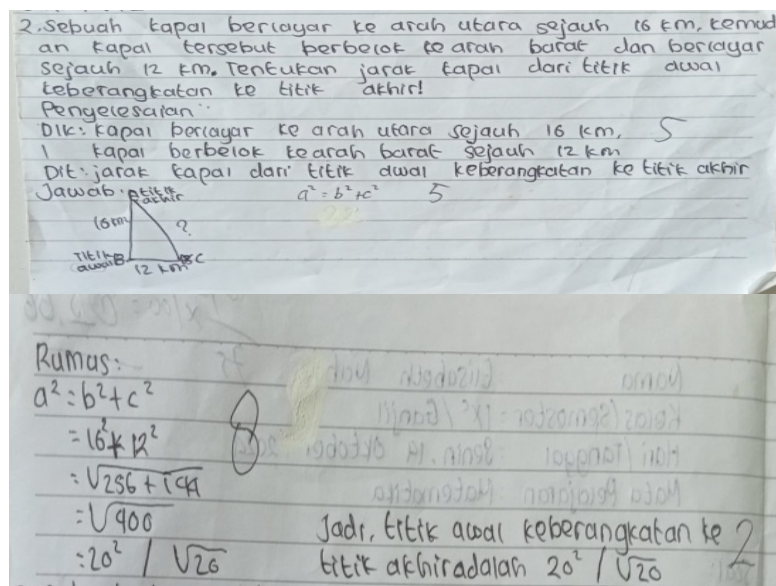 2. Sebuah kapal berlayar ke arah utara sejauh 16 km, kemud
an kapal tersebut berbelok ke arah barat dan berlayar
sejauh 12 km. Tentukan jarak kapal dari titik awal
keberangkatan ke titik akhir!
Penyelesaian:
Dik: kapal berlayar ke arah utara sejauh 16 km, 5
kapal berbelok ke arah barat sejauh 12 km
Dit: jarak kapal dari titik awal keberangkatan ke titik akhir
Jawab: A titik akhir a² = b² + c² 5
16 km ?
Titik awal B 12 km C
Rumus:
a² = b² + c²
= 16² + 12² 8
= √256 + 144
= √400
= 20² / √20
Jadi, titik awal keberangkatan ke 2
titik akhir adalah 20² / √20